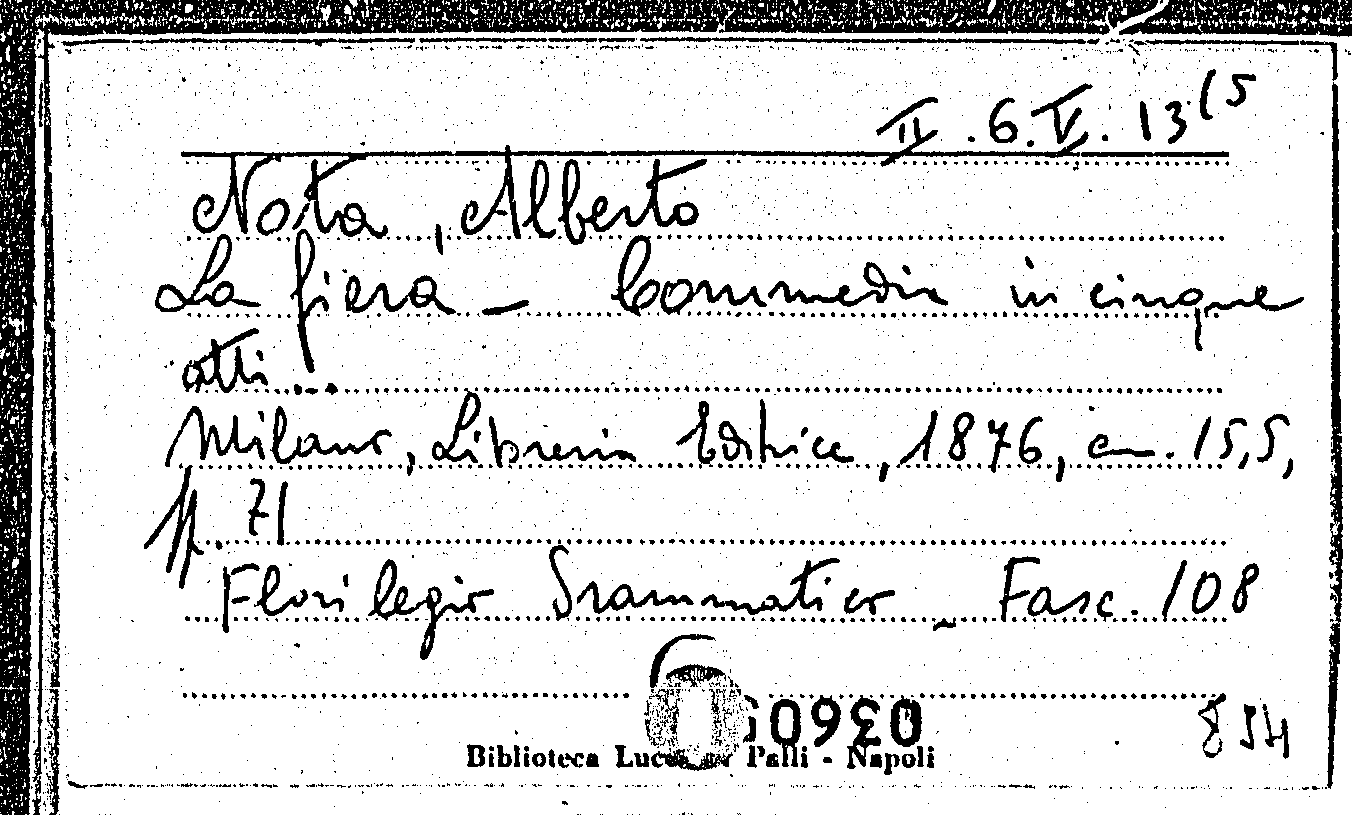 II.6.V.13(5
Nota, Alberto
La fiera - Commedia in cinque
atti...
Milano, Libreria Editrice, 1876, cm. 15,5,
pp. 71
Florilegio Drammatico - Fasc. 108
Biblioteca Lucchesi Palli - Napoli